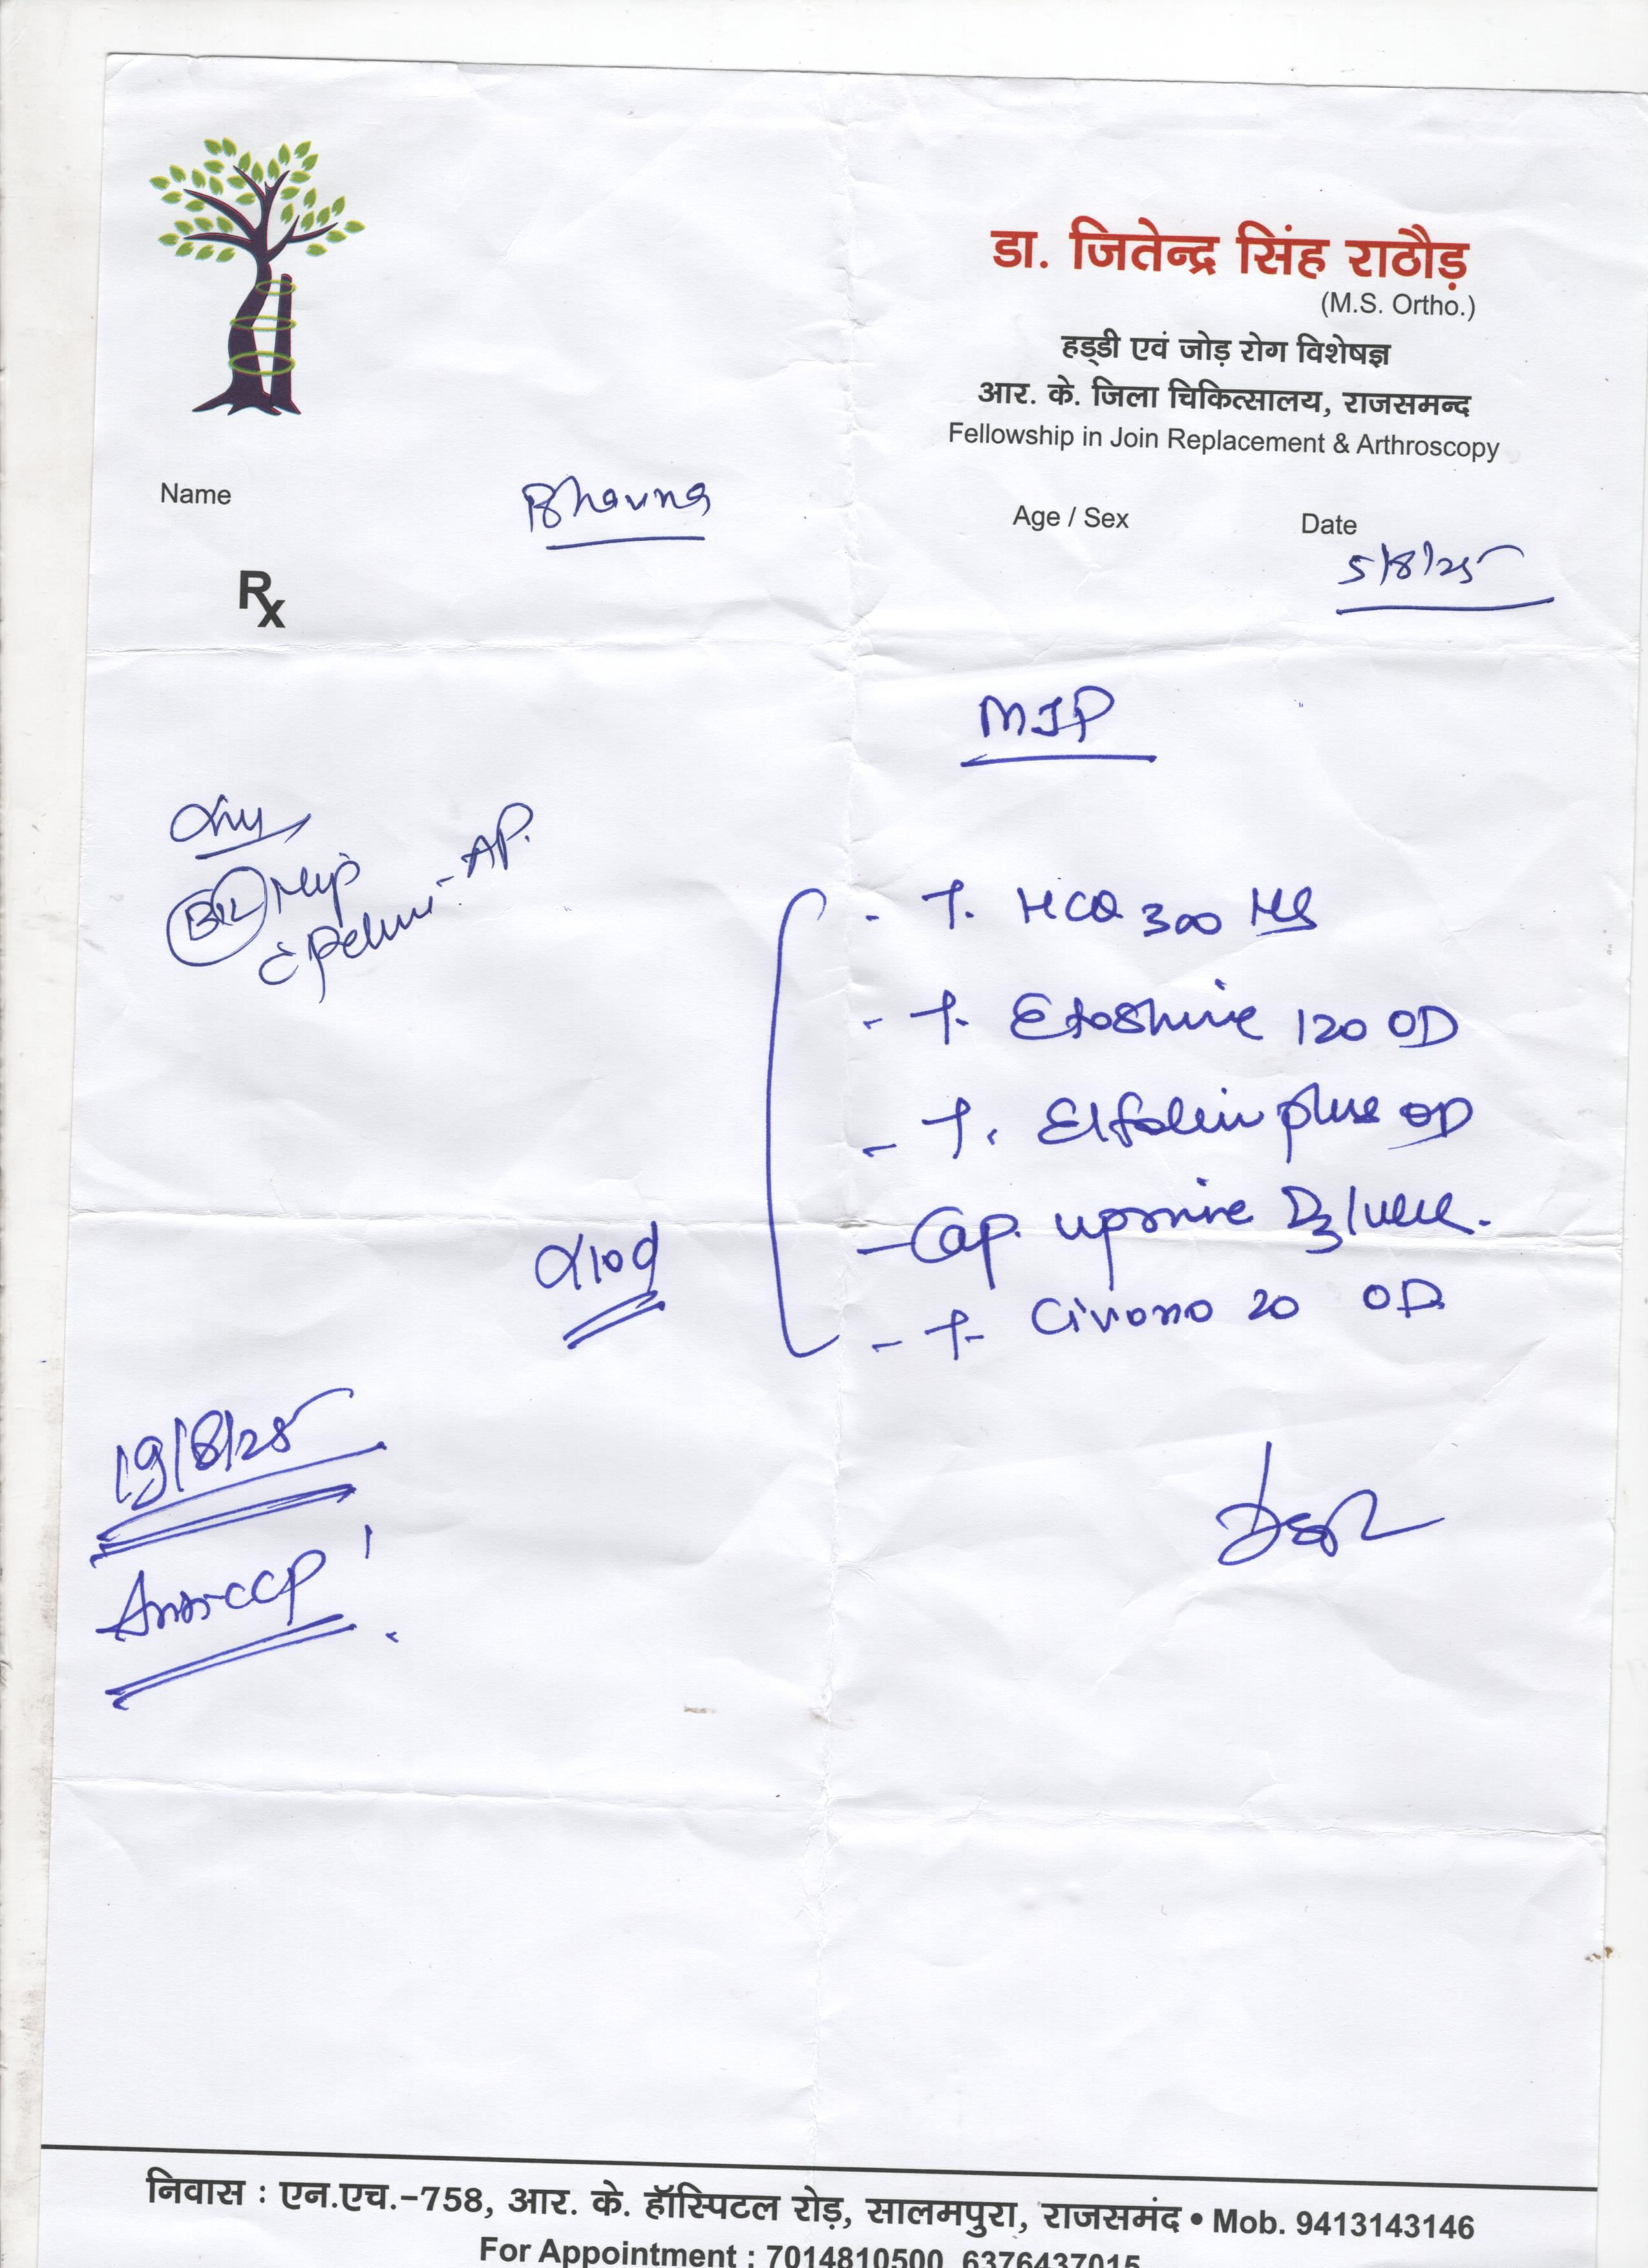 डा. जितेन्द्र सिंह राठौड़
(M.S. Ortho.)
हड्डी एवं जोड़ रोग विशेषज्ञ
आर. के. जिला चिकित्सालय, राजसमन्द
Fellowship in Join Replacement & Arthroscopy
Name Bhavna
Age / Sex
Date 5/8/25
Rx
MJP
AP.
- T. HCQ 300 HS
- T. Etoshine 120 OD
- T. Elfolin plus OD
- Cap. uprise D3 1/week.
- T. 20 OD
x10d
19/8/25
Anti-CCP
निवास : एन.एच.-758, आर. के. हॉस्पिटल रोड़, सालमपुरा, राजसमंद • Mob. 9413143146
For Appointment : 7014810500, 6376437015